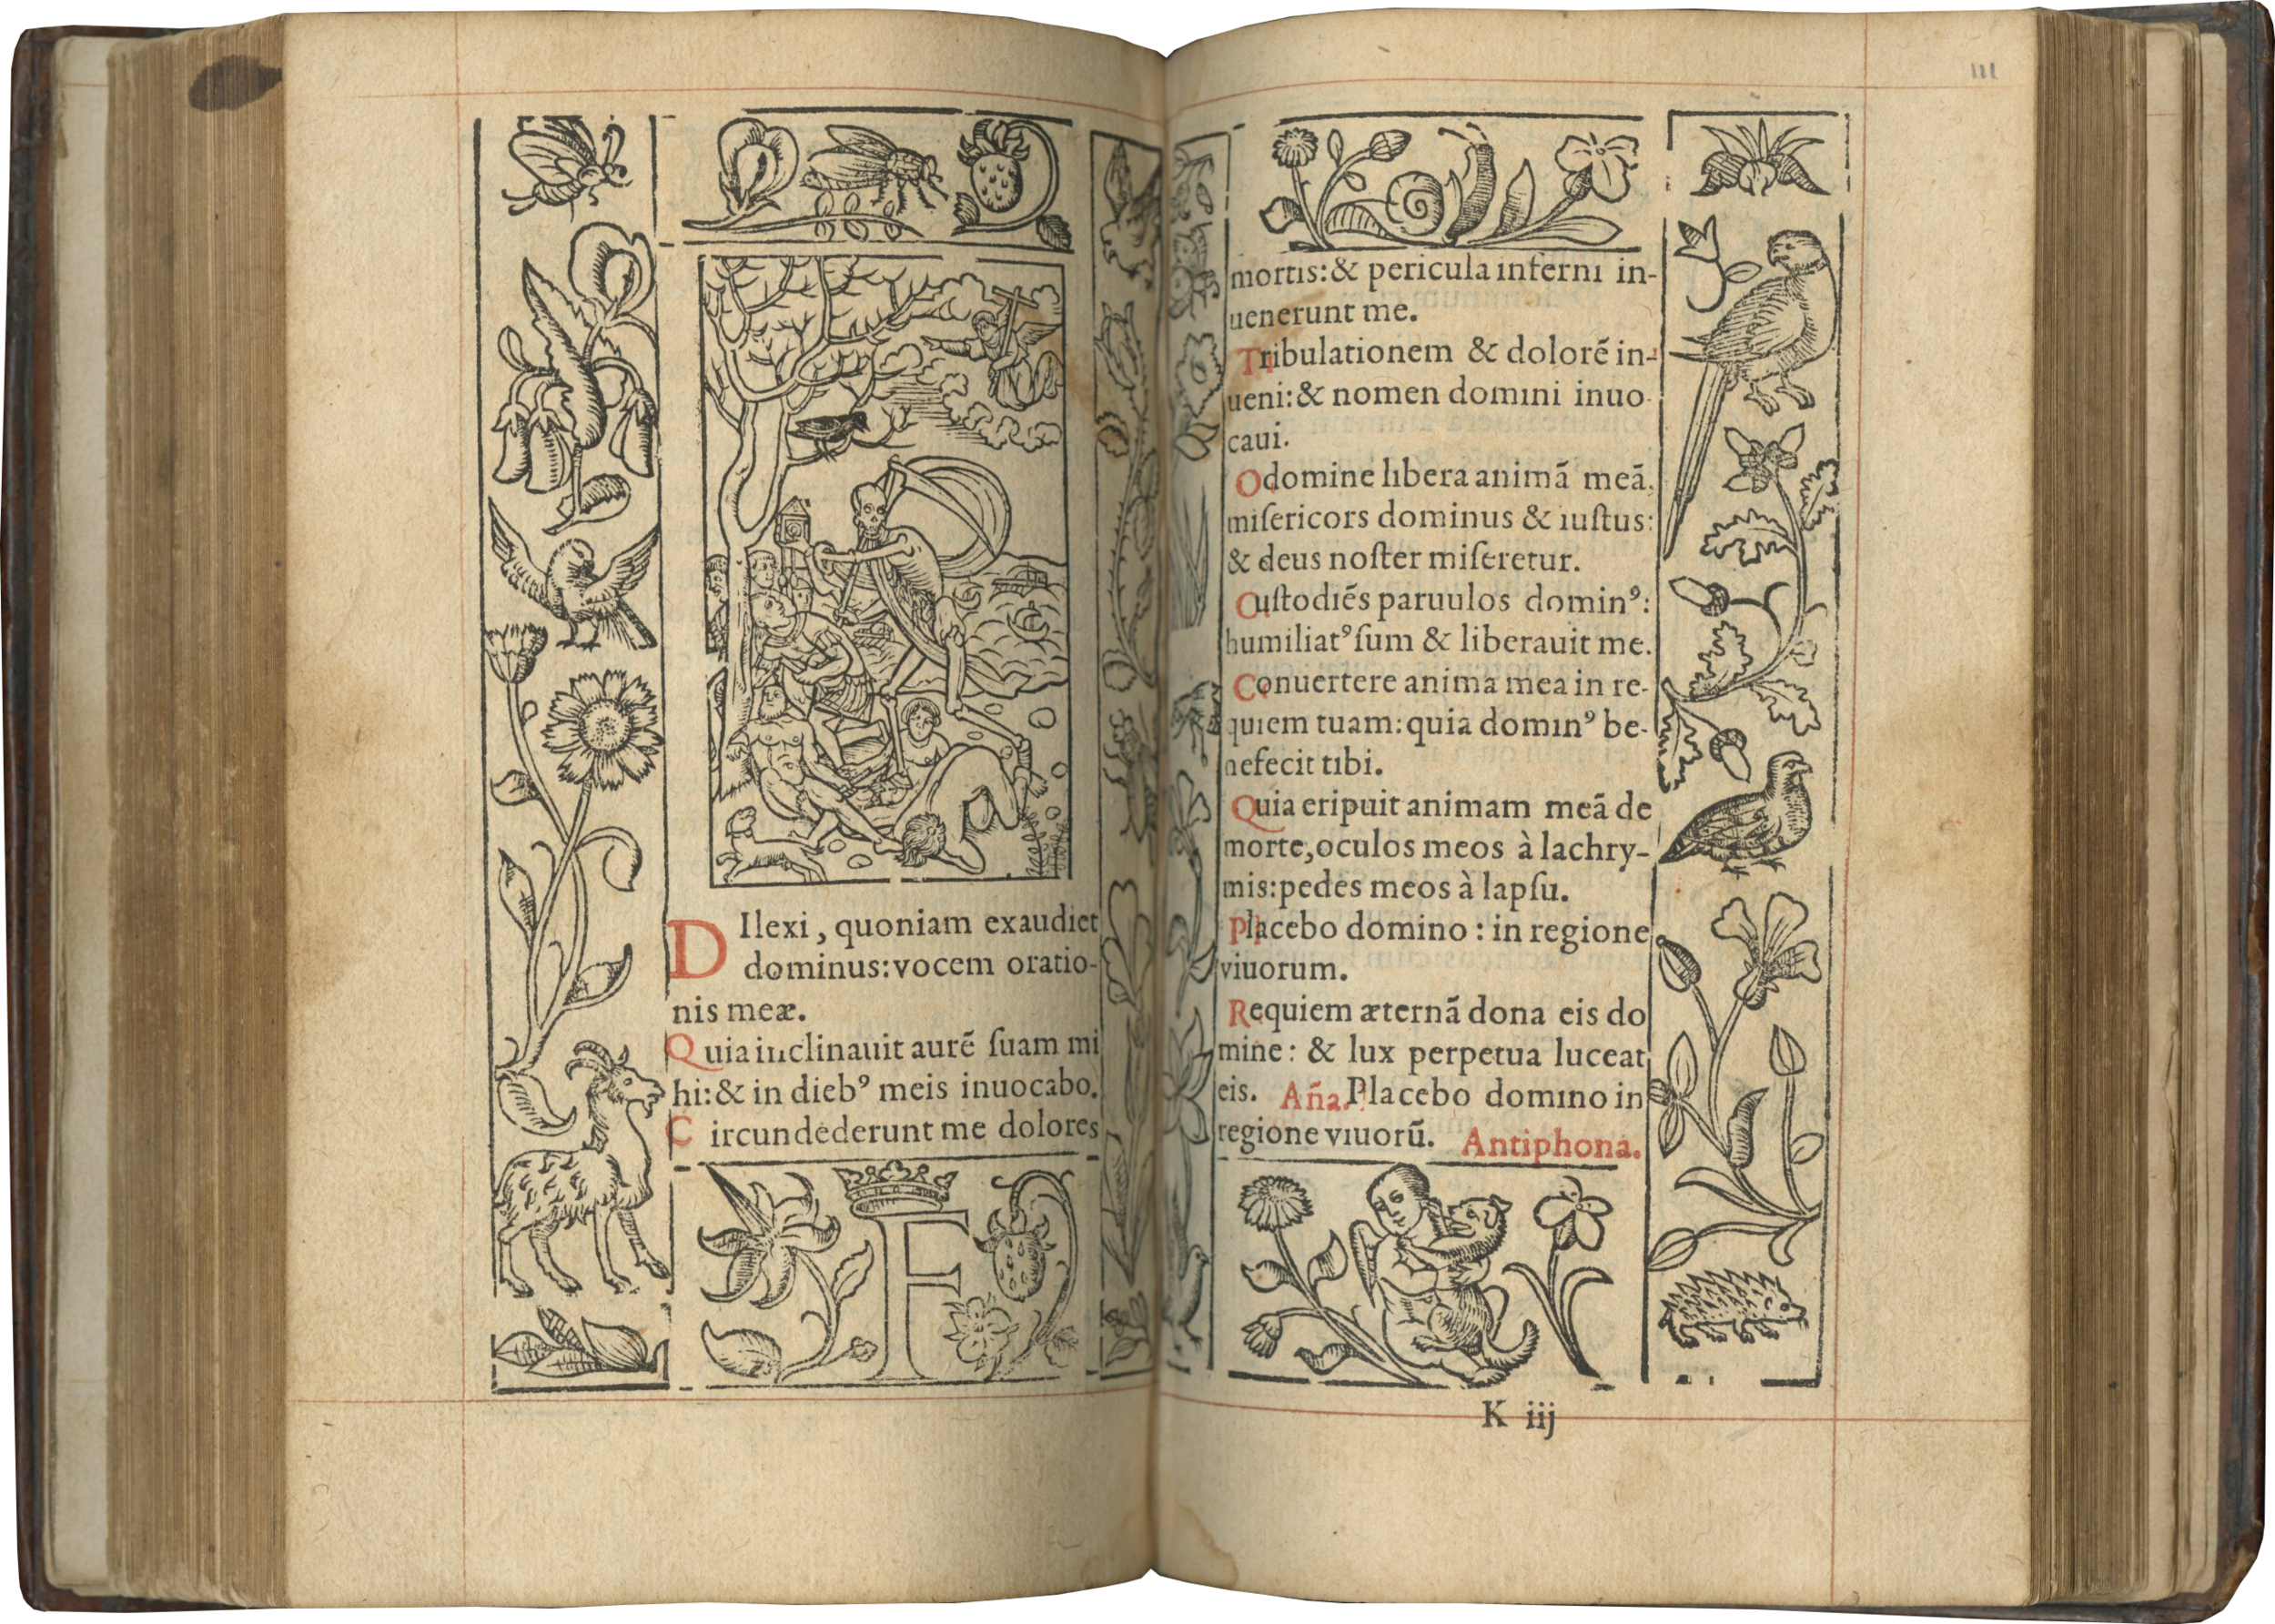 DIlexi, quoniam exaudiet
dominus: vocem oratio-
nis meæ.
Quia inclinauit aurē ſuam mi
hi: & in dieb⁹ meis inuocabo.
Circundederunt me dolores
F
III
mortis: & pericula inferni in-
uenerunt me.
Tribulationem & dolorē in-
ueni: & nomen domini inuo
caui.
O domine libera animā meā,
miſericors dominus & iuſtus:
& deus noſter miſeretur.
Cuſtodiēs paruulos domin⁹:
humiliat⁹ ſum & liberauit me.
Conuertere anima mea in re-
quiem tuam: quia domin⁹ be-
nefecit tibi.
Quia eripuit animam meā de
morte, oculos meos à lachry-
mis: pedes meos à lapſu.
Placebo domino: in regione
viuorum.
Requiem æternā dona eis do
mine: & lux perpetua luceat
eis. Aña. Placebo domino in
regione viuorū. Antiphona.
K iij